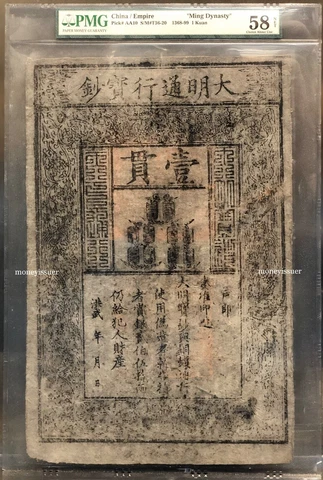 PMG
PAPER MONEY GUARANTY
China / Empire "Ming Dynasty"
Pick# AA10 S/M#T36-20 1368-99 1 Kuan
58
大明通行寶鈔
壹貫
moneyissuer
moneyissuer
戶部
奏准印造
大明寶鈔與銅錢通行
使用偽造者斬告捕
者賞銀貳佰伍拾兩
仍給犯人財產
洪武 年 月 日